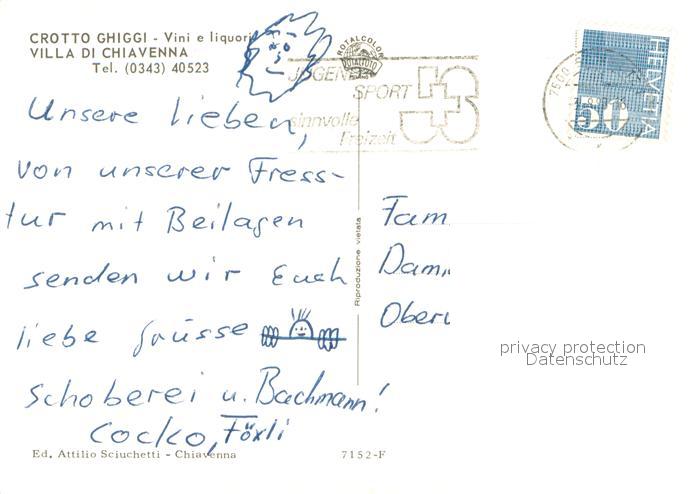 CROTTO GHIGGI - Vini e liquori
VILLA DI CHIAVENNA
Tel. (0343) 40523
ROTALCOLOR
ROTALFOTO
JUGEND
SPORT
sinnvolle
Freizeit
7500
HELVETIA
50
Unsere lieben,
von unserer Fress-
tur mit Beilagen
senden wir Euch
liebe Grüsse
Schoberei u. Bachmann!
Cocko, Föxli
Riproduzione vietata
Fam.
Dam
Ober
privacy protection
Datenschutz
Ed. Attilio Sciuchetti - Chiavenna
7152-F